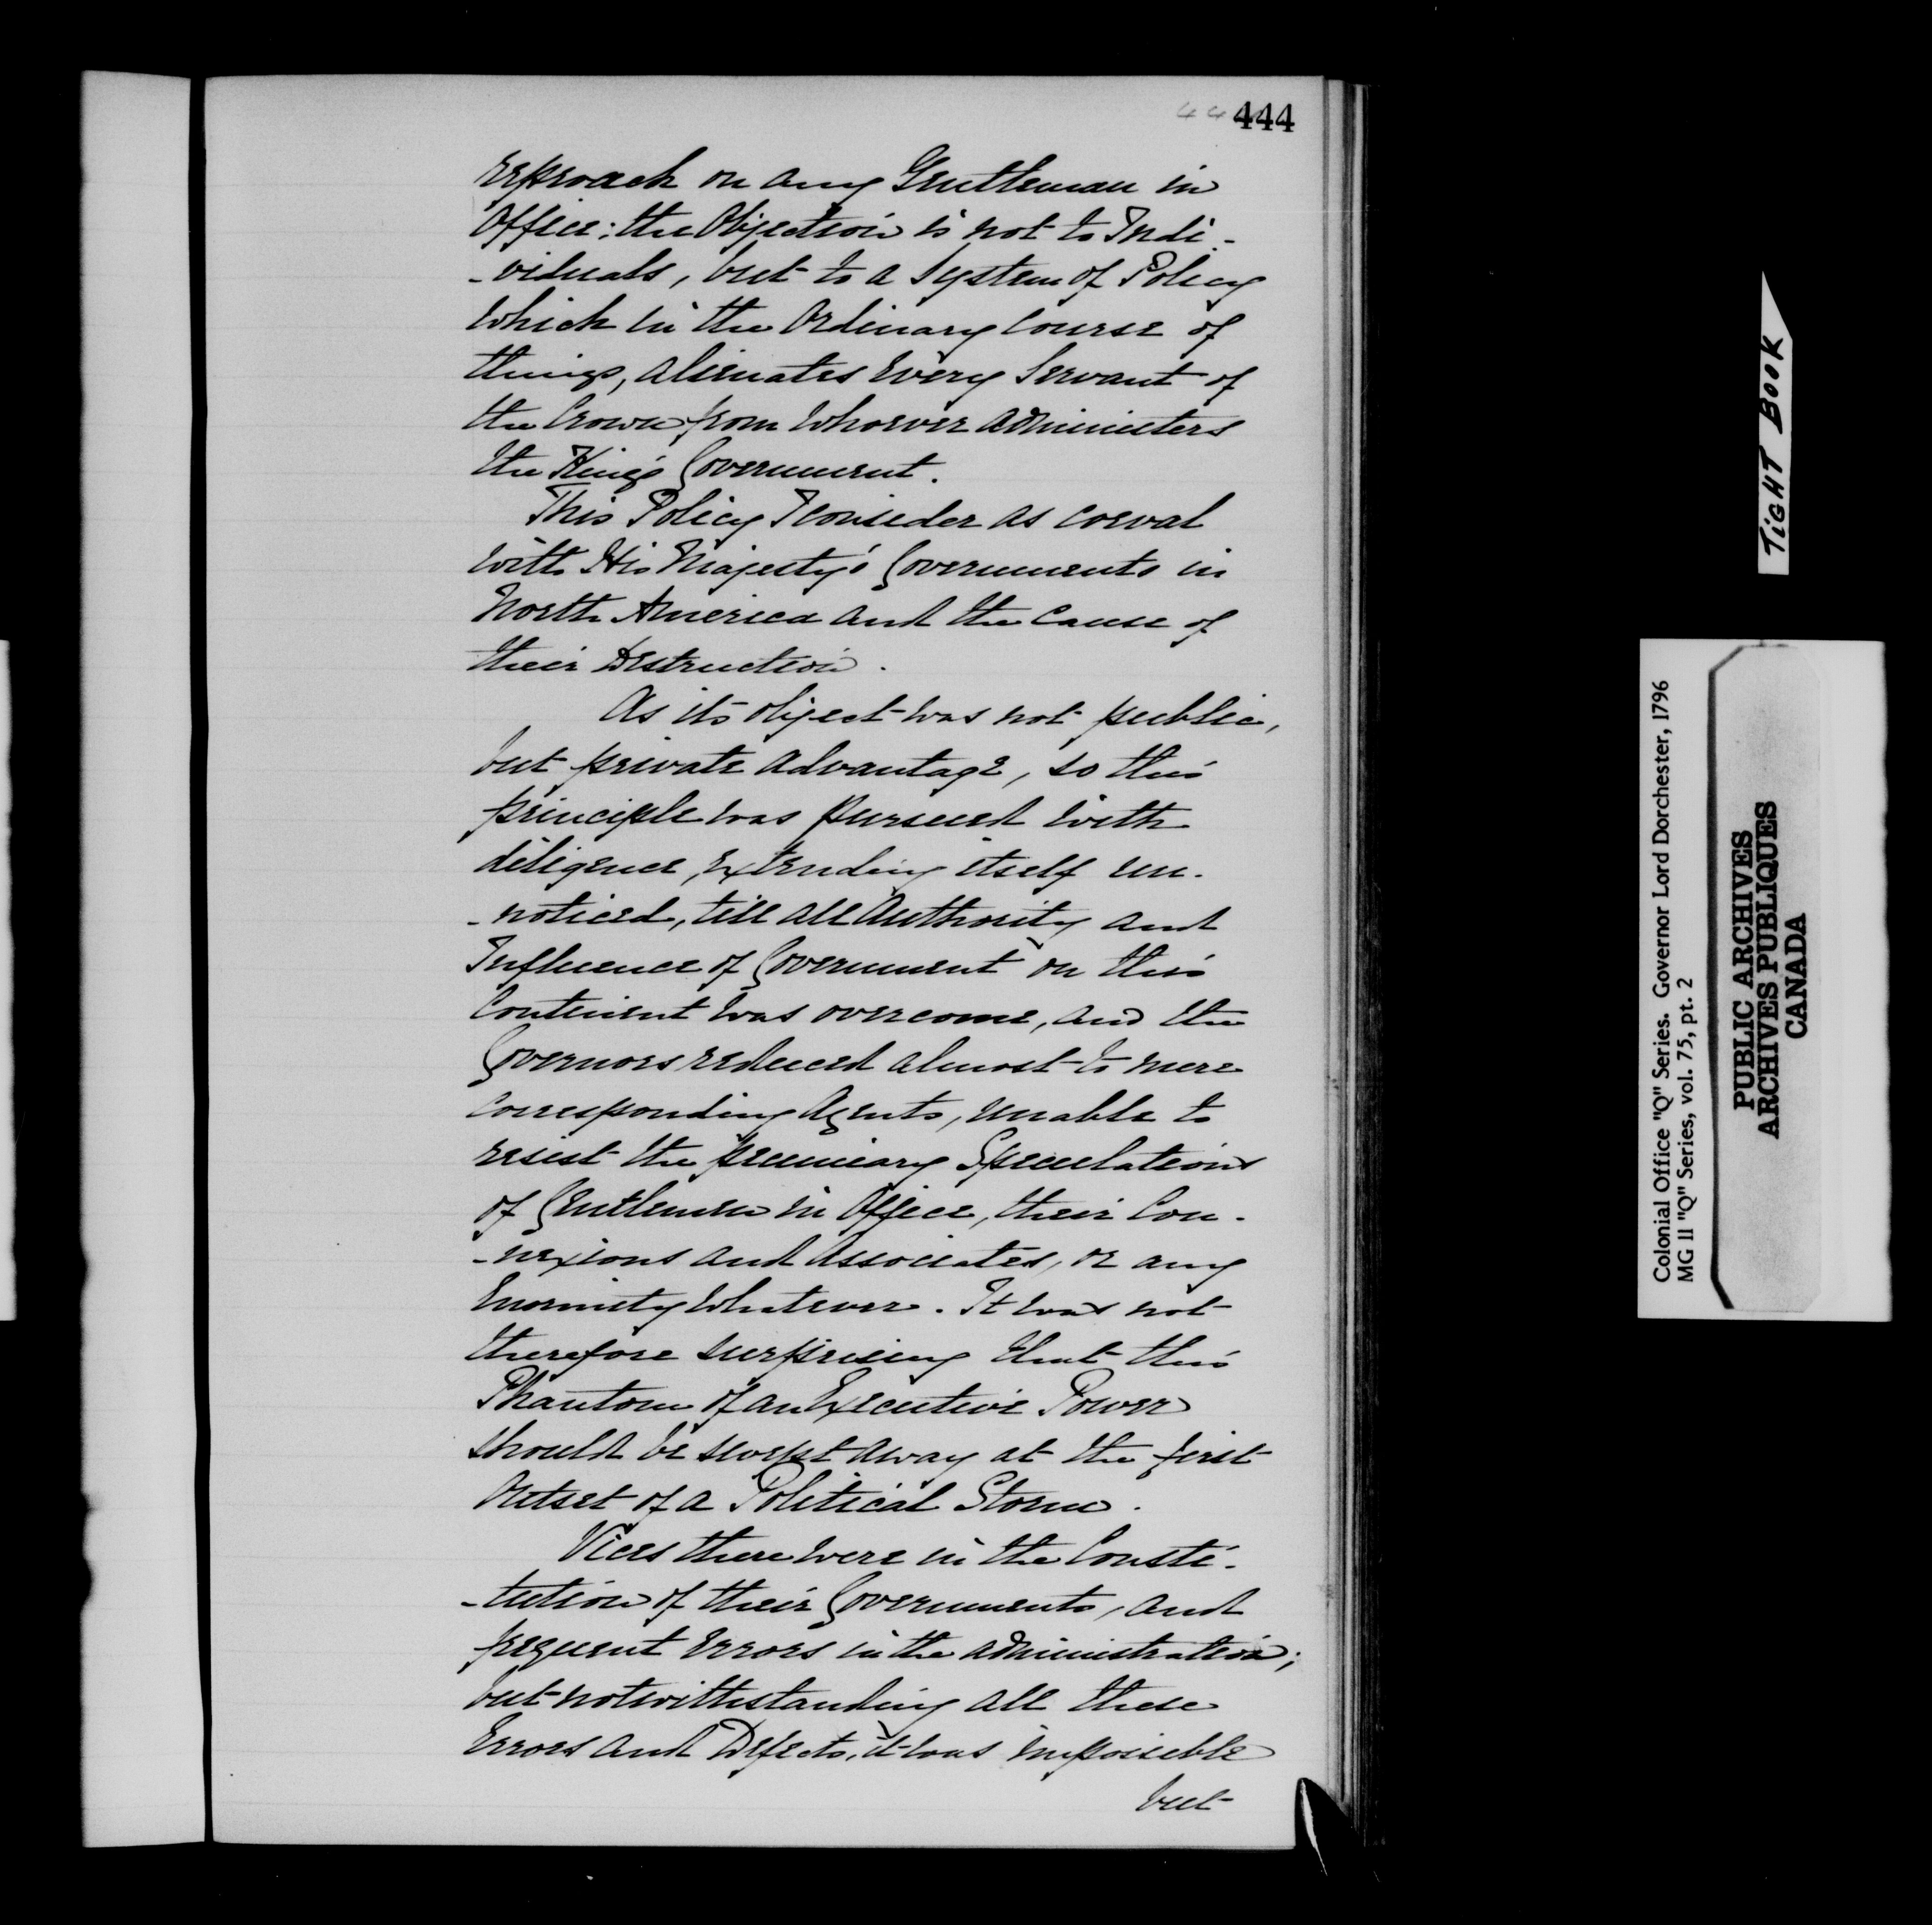 444
reproach on any Gentleman in
Office; the Objection is not to Indi-
-viduals, but to a System of Policy
which in the Ordinary Course of
things, alienates every Servant of
the Crown from whoever administers
the King's Government.
This Policy I consider as coeval
with His Majesty's Governments in
North America and the Cause of
their Destruction.
As its object was not public,
but private advantage, so this
principle was pursued with
diligence, extending itself un-
-noticed, till all Authority and
Influence of Government on this
Continent was overcome, and the
Governors reduced almost to mere
Corresponding Agents, unable to
resist the pecuniary Speculations
of Gentlemen in Office, their Con-
-nexions and Associates, or any
Enormity whatever. It was not
therefore surprising that this
Phantom of an Executive Power
should be swept away at the first
Outset of a Political Storm.
Vices there were in the Consti-
-tution of their Governments, and
frequent Errors in the administration;
but notwithstanding all these
Errors and Defects, it was impossible
but
TIGHT BOOK
Colonial Office "Q" Series. Governor Lord Dorchester, 1796
MG 11 "Q" Series, vol. 75, pt. 2
PUBLIC ARCHIVES
ARCHIVES PUBLIQUES
CANADA